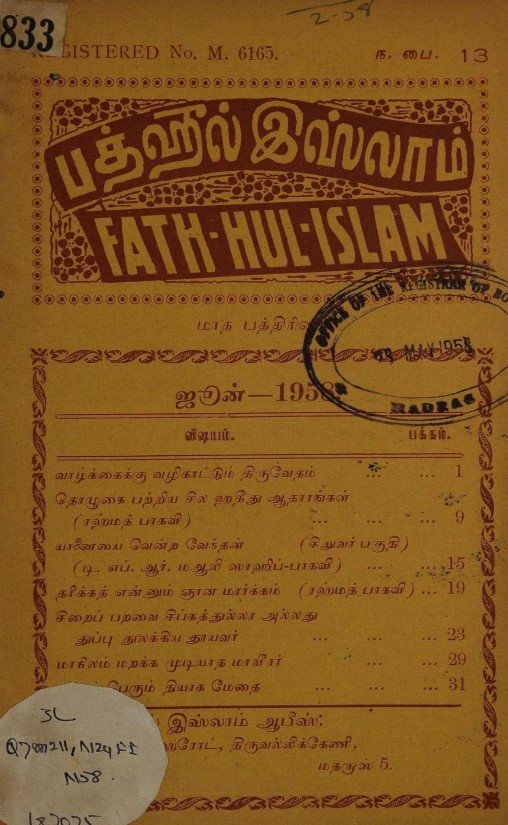 833
2-58
REGISTERED No. M. 6165. ந. பை. 13
பத்ஹுல் இஸ்லாம்
FATH-HUL-ISLAM
மாத
OFFICE OF THE REGISTRAR OF
MAY 1958
MADRAS
ஜூன்—1958
விஷயம். பக்கம்.
வாழ்க்கைக்கு வழிகாட்டும் திருவேதம் ... ... 1
தொழுகை பற்றிய சில ஹதீது ஆதாரங்கள்
(ரஹ்மத் பாகவி) ... ... ... 9
யானையை வென்ற வேந்தன் (சிறுவர் பகுதி)
(டி. எப். ஆர். மஆலி ஸாஹிப்-பாகவி) ... ... 15
தரீக்கத் என்னும் ஞான மார்க்கம் (ரஹ்மத் பாகவி) ... 19
சிறைப் பறவை சிப்கத்துல்லா அல்லது
துப்பு துலக்கிய தூயவர் ... ... ... 23
மாநிலம் மறக்க முடியாத மாவீரர் ... ... 29
பெரும் தியாக மேதை ... ... ... 31
இஸ்லாம் ஆபீஸ்:
திருவல்லிக்கேணி,
மதராஸ் 5.
3L
N58
187075